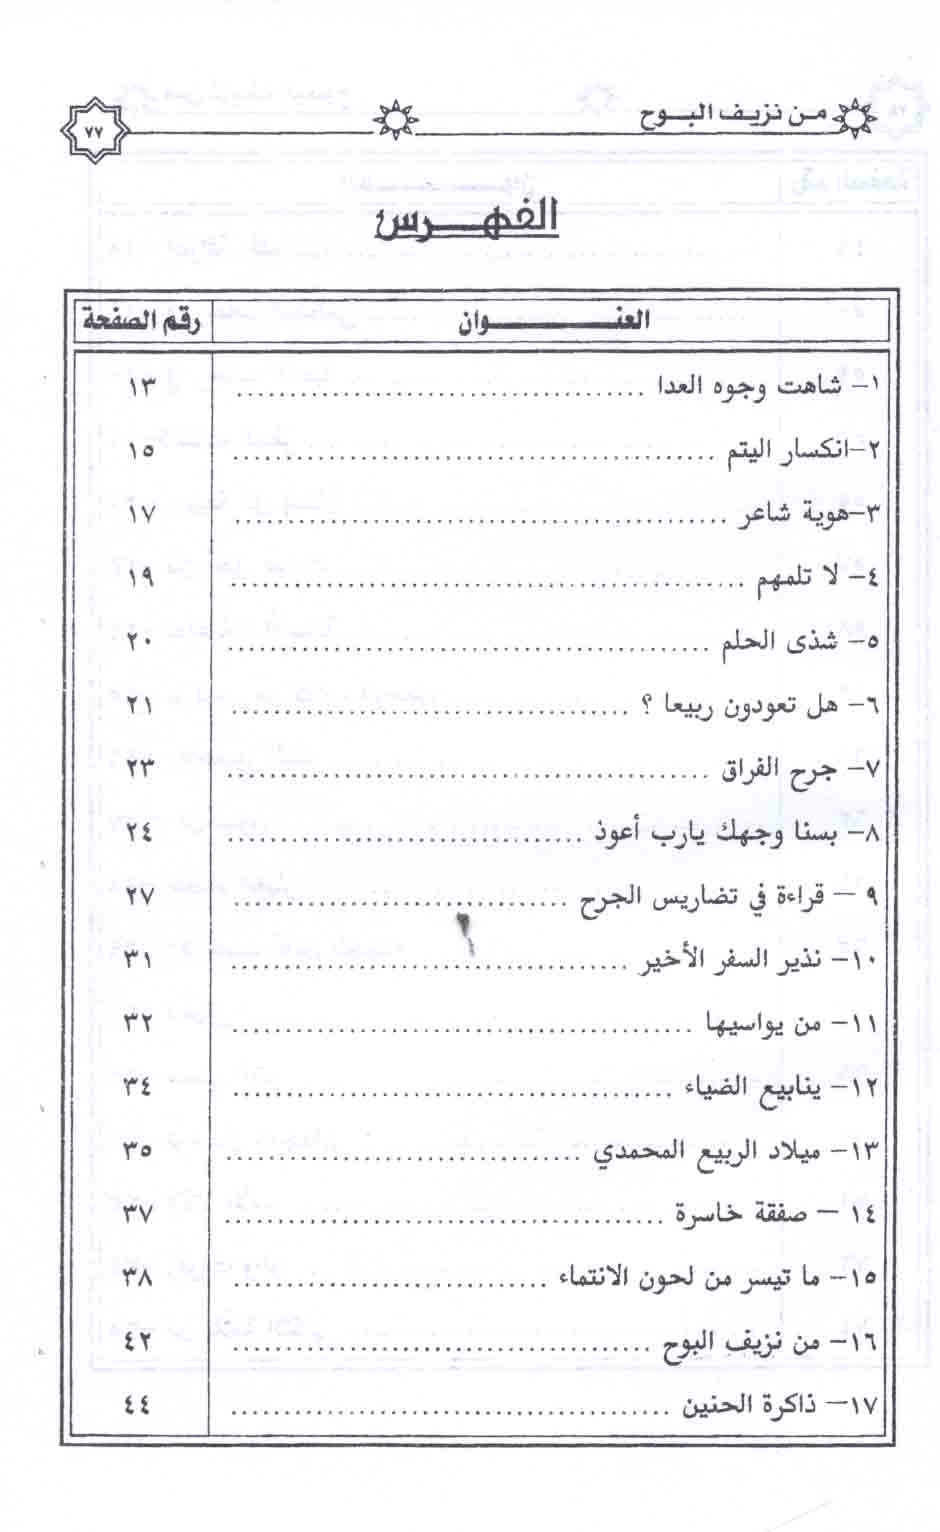 من نزيف البوح
٧٧
الفهرس
العنوان رقم الصفحة
١- شاهت وجوه العدا ........................................ ١٣
٢-انكسار اليتم ........................................ ١٥
٣-هوية شاعر ........................................ ١٧
٤- لا تلمهم ........................................ ١٩
٥- شذى الحلم ........................................ ٢٠
٦- هل تعودون ربيعا ؟ ........................................ ٢١
٧- جرح الفراق ........................................ ٢٣
٨- بسنا وجهك يارب أعوذ ........................................ ٢٤
٩ - قراءة في تضاريس الجرح ........................................ ٢٧
١٠- نذير السفر الأخير ........................................ ٣١
١١- من يواسيها ........................................ ٣٢
١٢- ينابيع الضياء ........................................ ٣٤
١٣- ميلاد الربيع المحمدي ........................................ ٣٥
١٤ - صفقة خاسرة ........................................ ٣٧
١٥- ما تيسر من لحون الانتماء ........................................ ٣٨
١٦- من نزيف البوح ........................................ ٤٢
١٧- ذاكرة الحنين ........................................ ٤٤